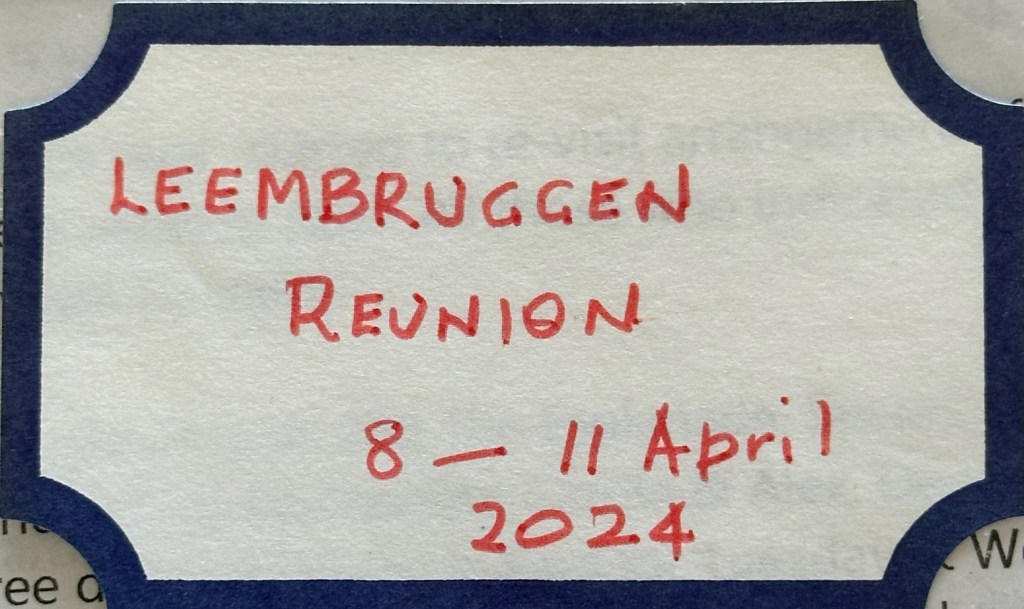 LEEMBRUGGEN
REUNION
8 — 11 April
2024